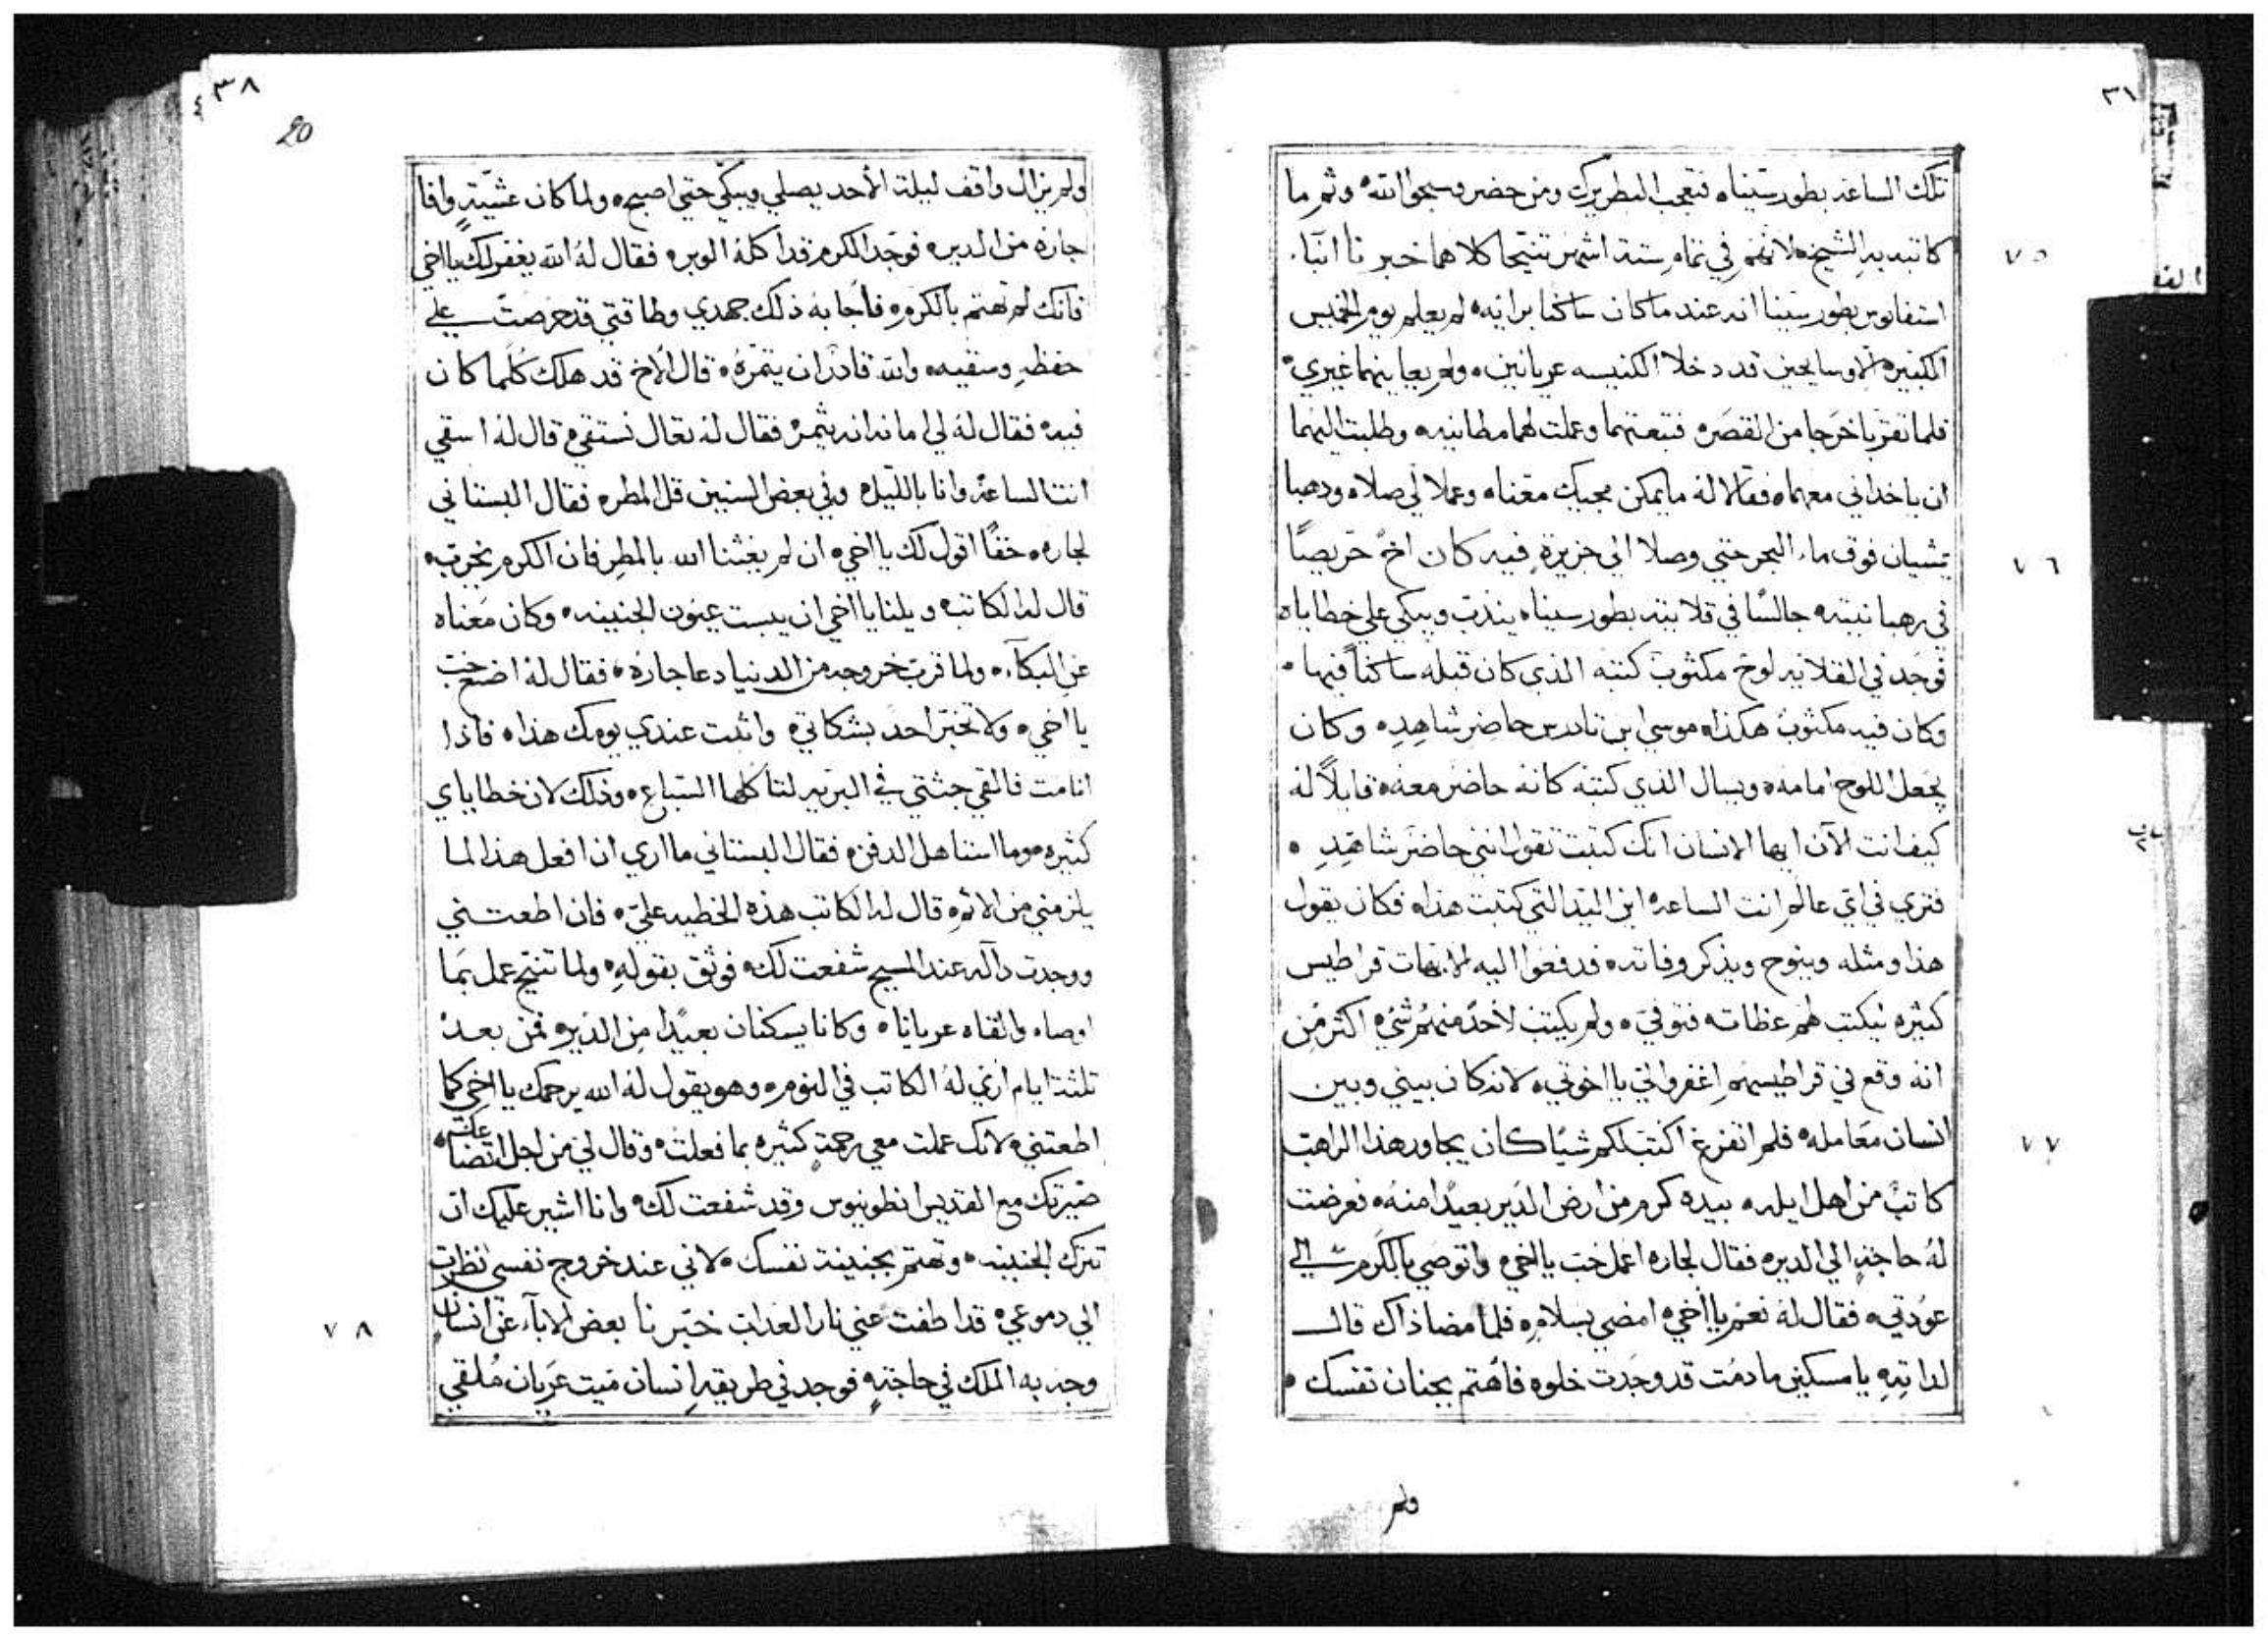 ٣١
تلك الساعه بطور سيناه فتعجب البطريرك ومن حضر وسبحوا الله وثم ما
كاتبه به الشيخ لانهم في تمام ستة اشهر تنيحا كلاهما خبرنا انبا
٧٥
استفانوس بطور سينا انه عند ما كان ساكنا برايه لم يعلم يوم الخميس
الكبيره الا وسايحين قد دخلا الكنيسه عريانين ولم يعاينهما غيري
فلما تقربا خرجا من القصره فتبعتهما وعملت لهما مطانيه وطلبت اليهما
ان ياخداني معهما فقالا له ما يمكن مجيك معناه وعملا لي صلاه ودهبا
يمشيان فوق ماء البحر حتي وصلا الي جزيرة فيه كان اخ حريصا
٧٦
في رهبانيته جالسا في قلايته بطور سيناه يندب ويبكي علي خطاياه
فوجد في القلايه لوح مكتوب كتبه الذي كان قبله ساكنا فيها
وكان فيه مكتوب هكذا موسي ابن تادرس حاضر شاهد وكان
يجعل اللوح امامه ويسال الذي كتبه كانه حاضر معه قايلا له
كيف انت الان ايها الانسان انك كتبت تقول انني حاضر شاهد
فتري في اي عالم انت الساعه اين اليد التي كتبت هذا فكان يقول
هذا ومثله وينوح ويذكر وفاته فدفعوا اليه الابهات قراطيس
كثيره ليكتب لهم عظات فتوفي ولم يكتب لاحد منهم شي اكثر من
انه وقع في قراطيسهم اغفروا لي يا اخوتي لانه كان بيني وبين
انسان معامله فلم اتفرغ اكتب لكم شيا كان يجاور هذا الراهب
٧٧
كاتب من اهل ايله بيده كرم من ارض الدير بعيدا منه فعرضت
له حاجة الي الدير فقال لجاره اعمل حب يا اخي واتوصي بالكرم الي
عودتي فقال له نعم يا اخي امضي بسلام فلما مضا ذاك قال
لداته يا مسكين ما دمت قد وجدت خلوه فاهتم بجنان نفسك
ولم
٣٨
20
ولم يزال واقف ليلة الاحد يصلي ويبكي حتي اصبح ولما كان عشية وافا
جاره من الدير فوجد الكرم قد اكله الوبر فقال له الله يغفر لك يا اخي
فانك لم تهتم بالكرم فاجابه ذلك جهدي وطاقتي قد حرصت علي
حفظه وسقيه والله قادر ان يتمره قال الاخ قد هلك كلما كان
فيه فقال له لي امانه انه يثمر فقال له تعال نستقي قال له اسقي
انت الساعه وانا بالليل وفي بعض السنين قل المطر فقال البستاني
لجاره حقا اقول لك يا اخي ان لم يغثنا الله بالمطر فان الكرم يخرب
قال له الكاتب ويلنا يا اخي ان يبست عيون الجنينه وكان معناه
عن البكاء ولما قرب خروجه من الدنيا دعا جاره فقال له اصنع حب
يا اخي ولا تخبر احد بشكاتي واثبت عندي يومك هذا فاذا
انا مت فالقي جثتي في البريه لتاكلها السباع وذلك لان خطاياي
كثيره وما استاهل الدفن فقال البستاني ما اري ان افعل هذا لما
يلزمني من الاثم قال له الكاتب هذه الخطيه علي فان اطعتني
ووجدت داله عند المسيح شفعت لك فوثق بقوله ولما تنيح عمل بما
اوصاه والقاه عريانا وكانا يسكنان بعيدا من الدير فمن بعد
تلثة ايام اري له الكاتب في النوم وهو يقول له الله يرحمك يا اخي كما
اطعتني لانك عملت معي رحمة كثيره بما فعلت وقال لي من اجل اتضاعك
صيرتك مع القديس انطونيوس وقد شفعت لك وانا اشير عليك ان
تترك الجنينه وتهتم بجنينة نفسك لاني عند خروج نفسي نظرت
الي دموعي قد اطفت عني نار العداب خبرنا بعض الاباء عن انسان
٧٨
وجه به الملك في حاجته فوجد في طريقه انسان ميت عريان ملقي